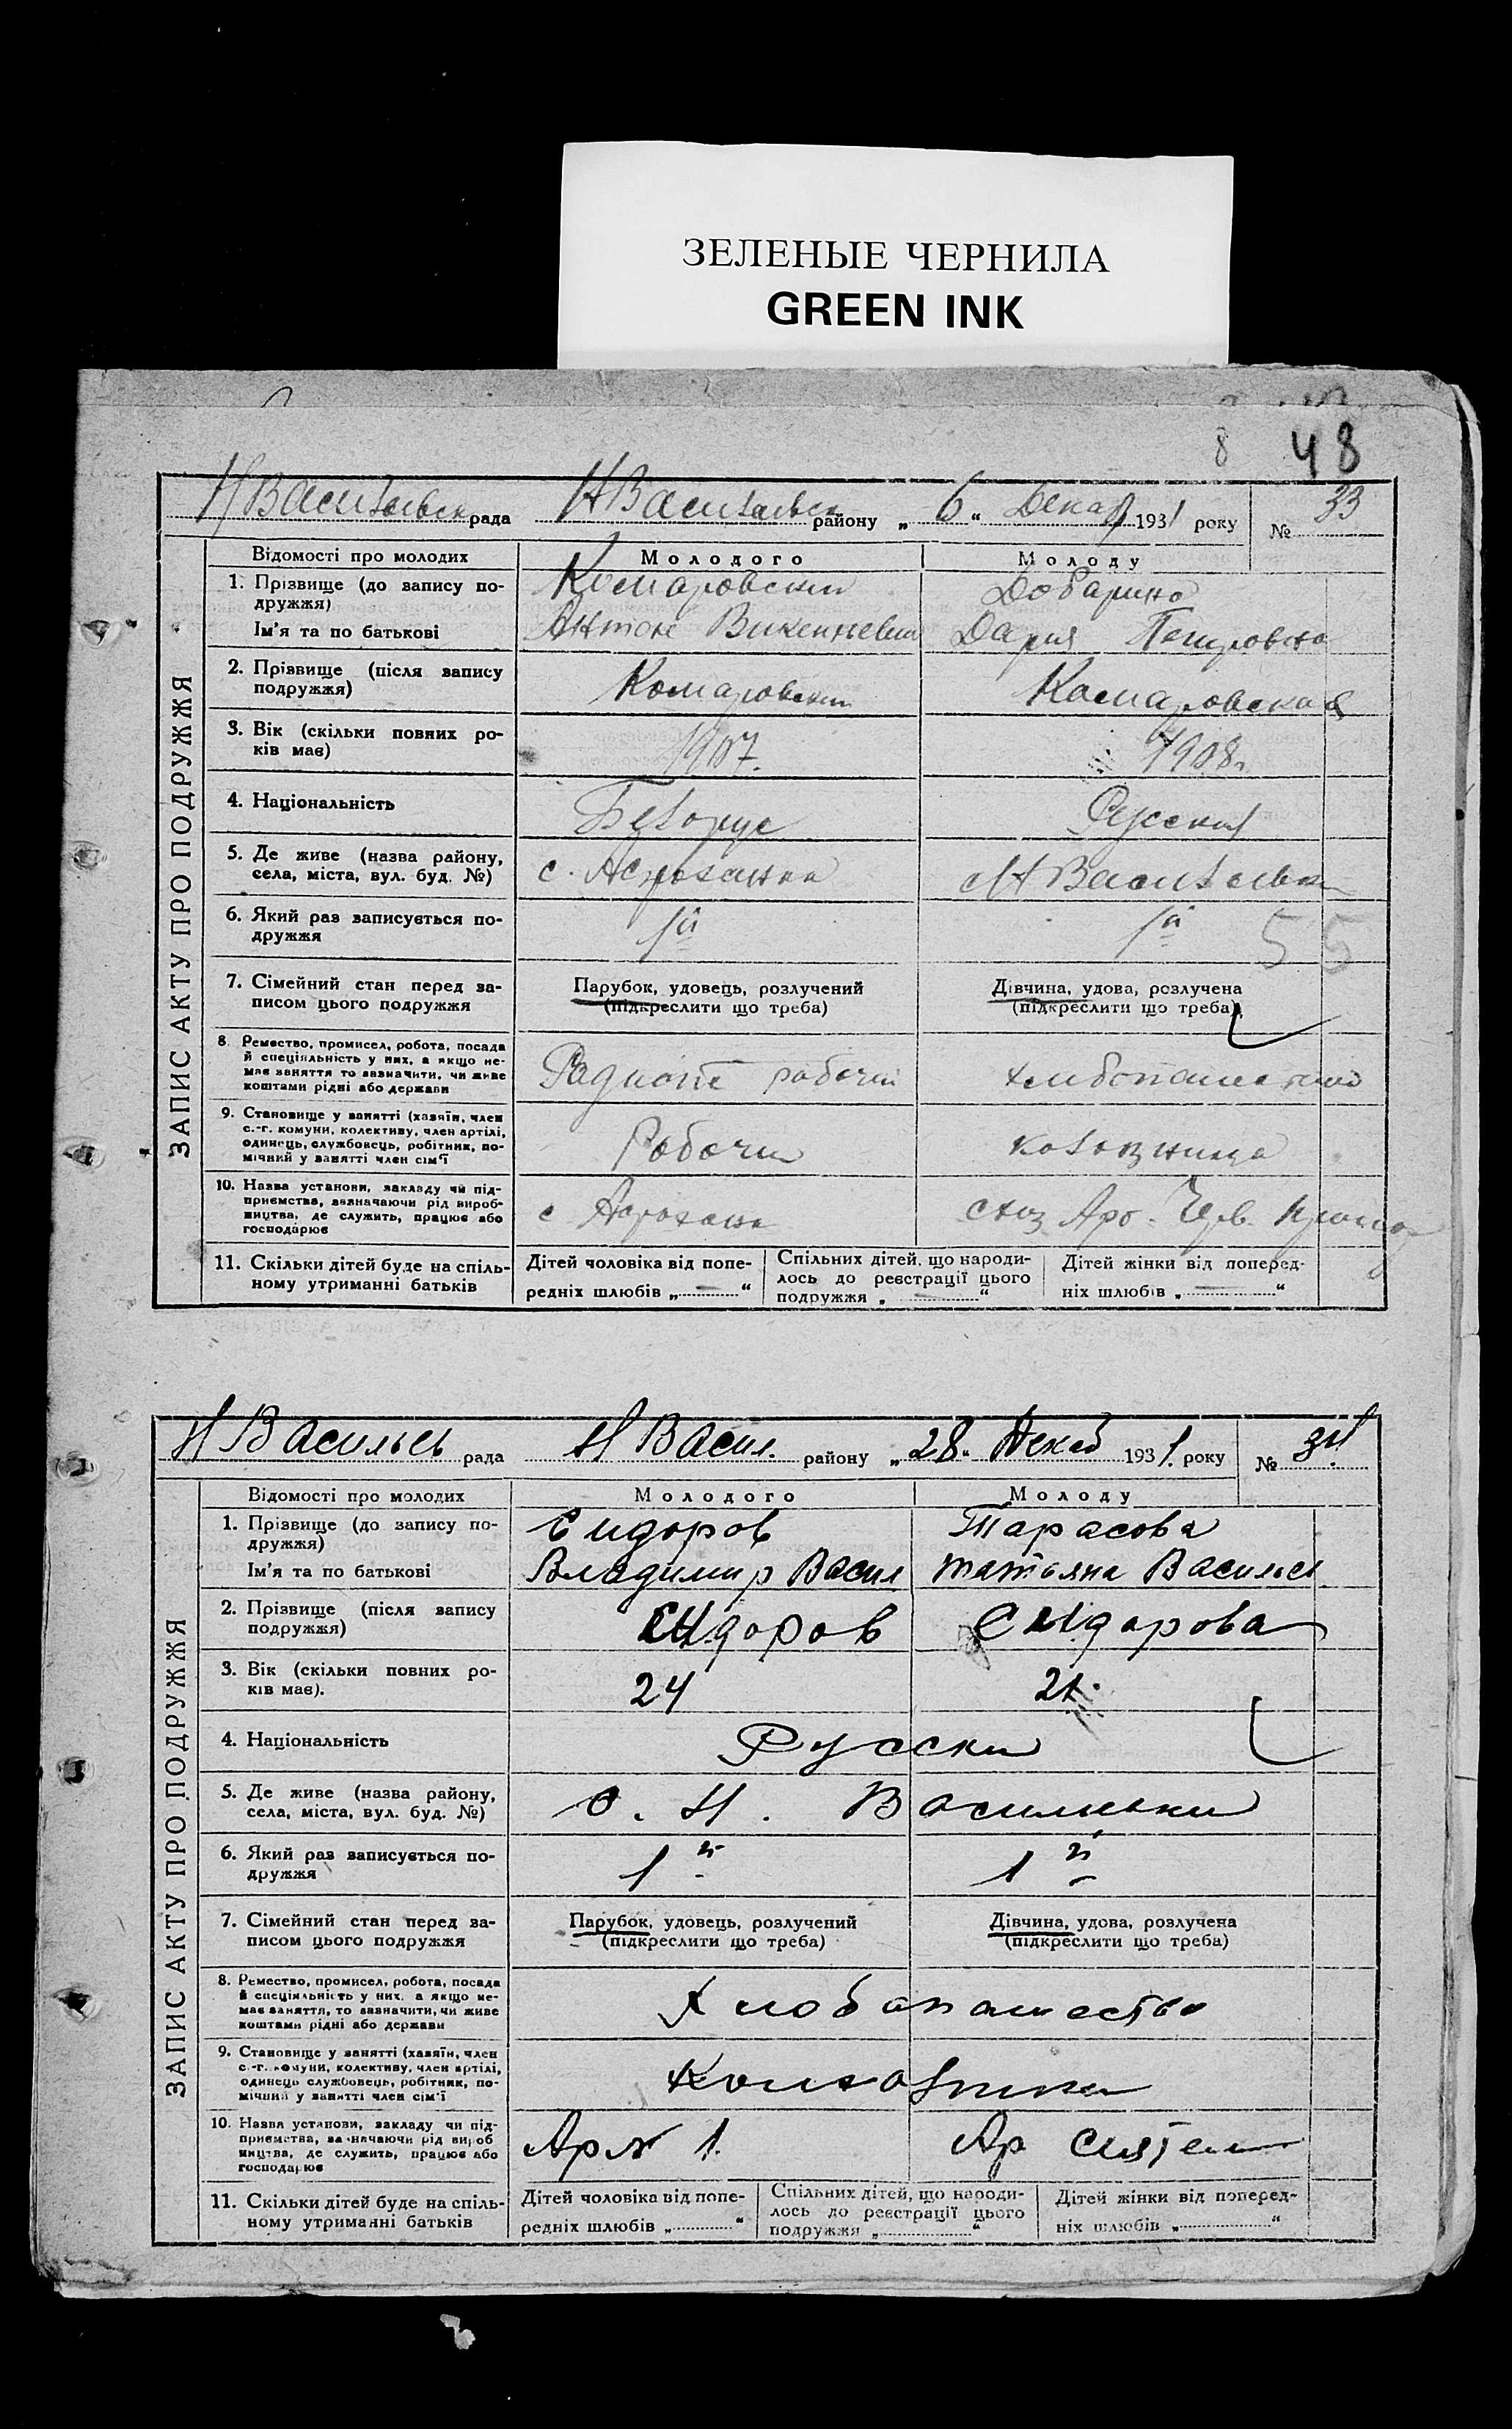 ЗЕЛЕНЫЕ ЧЕРНИЛА
GREEN INK
8 48
НВасильевск рада НВасильевск району „ 6 “ Декаб 1931 року № 33
ЗАПИС АКТУ ПРО ПОДРУЖЖЯ
Відомості про молодих Молодого Молоду
1. Прізвище (до запису по- Комаровский
дружжя)
Ім'я та по батькові Антон Дария Петровна
2. Прізвище (після запису Комаровский Комаровская
подружжя)
3. Вік (скільки повних ро- 1907. 1908г.
ків має)
4. Національність Белорус Русская
5. Де живе (назва району, с. Астраханка Н Васильевка
села, міста, вул. буд. №)
6. Який раз записується по- 1й 1й 55
дружжя
7. Сімейний стан перед за- Парубок, удовець, розлучений Дівчина, удова, розлучена
писом цього подружжя (підкреслити що треба) (підкреслити що треба)
8. Ремество, промисел, робота, посада
й спеціяльність у них, а якщо не- рабочий
має заняття то зазначити, чи живе
коштами рідні або держави
9. Становище у занятті (хазяїн, член
с.-г. комуни, колективу, член артілі, Рабочий колхозница
одинець, службовець, робітник, по-
мічний у занятті член сім'ї
10. Назва установи, закладу чи під-
приємства, зазначаючи рід вироб-
ництва, де служить, працює або с Астрахан
господарює
11. Скільки дітей буде на спіль- Дітей чоловіка від попе- Спільних дітей, що народи- Дітей жінки від поперед-
ному утриманні батьків редніх шлюбів „ — “ лось до реєстрації цього ніх шлюбів „ — “
подружжя „ — “
Н Васильев рада Н Васил. району „ 28 “ Декаб 1931. року № 34
ЗАПИС АКТУ ПРО ПОДРУЖЖЯ
Відомості про молодих Молодого Молоду
1. Прізвище (до запису по- Сидоров Тарасова
дружжя)
Ім'я та по батькові Владимир Васил Татьяна Васильев
2. Прізвище (після запису Сидоров Сидорова
подружжя)
3. Вік (скільки повних ро- 24 21.
ків має).
4. Національність Русски
5. Де живе (назва району, с. Н. Васильевки
села, міста, вул. буд. №)
6. Який раз записується по- 1й 1й
дружжя
7. Сімейний стан перед за- Парубок, удовець, розлучений Дівчина, удова, розлучена
писом цього подружжя (підкреслити що треба) (підкреслити що треба)
8. Ремество, промисел, робота, посада
й спеціяльність у них, а якщо не- Хлюбопашество
має заняття, то зазначити, чи живе
коштами рідні або держави
9. Становище у занятті (хазяїн, член
с.-г. комуни, колективу, член артілі, Колхозники
одинець службовець, робітник, по-
мічний у занятті член сім'ї
10. Назва установи, закладу чи під-
приємства, зазначаючи рід вироб Ар
ництва, де служить, працює або
господарює
11. Скільки дітей буде на спіль- Дітей чоловіка від попе- Спільних дітей, що народи- Дітей жінки від поперед-
ному утриманні батьків редніх шлюбів „ “ лось до реєстрації цього ніх шлюбів „ “
подружжя „ “